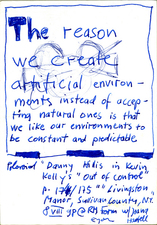 The reason
we create
artificial environ-
ments instead of accep-
ting natural ones is that
we like our environments to
be constant and predictable
Danny Hillis in Kevin
Kelly's "out of control"
p. 175 Livingston
Manor, Sullivan County, N.Y.
VIII @ RH Farm w/